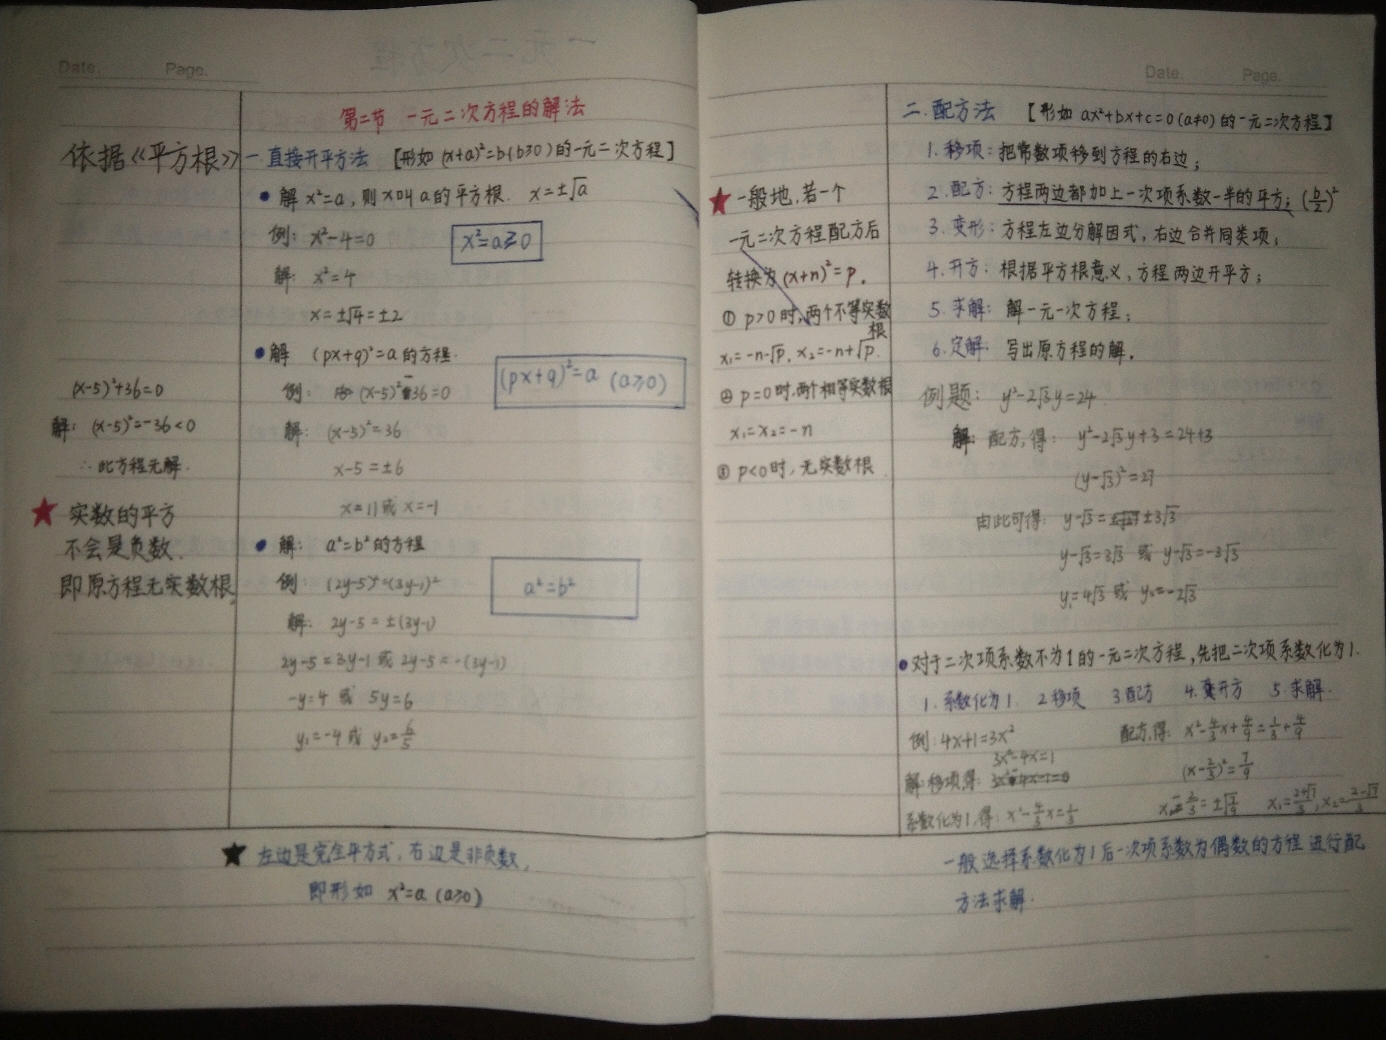 Date.
Page.
第二节 一元二次方程的解法
依据《平方根》
一.直接开平方法 【形如(x+a)²=b(b≥0)的一元二次方程】
● 解 x²=a,则x叫a的平方根. x=±√a
例: x²-4=0
x²=a≥0
解: x²=4
x=±√4=±2
● 解 (px+q)²=a的方程.
(px+q)²=a (a≥0)
例: (x-5)²-36=0
解: (x-5)²=36
x-5=±6
x=11或x=-1
● 解: a²=b²的方程
a²=b²
例 (2y-5)²=(3y-1)²
解: 2y-5=±(3y-1)
2y-5=3y-1或2y-5=-(3y-1)
-y=4 或 5y=6
y₁=-4或 y₂=6/5
(x-5)²+36=0
解: (x-5)²=-36<0
∴此方程无解.
★ 实数的平方
不会是负数、
即原方程无实数根。
★ 左边是完全平方式,右边是非负数,
即形如 x²=a (a≥0)
Date.
Page.
二.配方法 【形如 ax²+bx+c=0(a≠0)的一元二次方程】
1.移项:把常数项移到方程的右边;
2.配方:方程两边都加上一次项系数一半的平方;(b/2)²
3.变形:方程左边分解因式,右边合并同类项;
4.开方:根据平方根意义,方程两边开平方;
5.求解:解一元一次方程;
6.定解:写出原方程的解.
例题: y²-2√3y=24
解: 配方,得: y²-2√3y+3=24+3
(y-√3)²=27
由此可得: y-√3=±3√3
y-√3=3√3 或 y-√3=-3√3
y₁=4√3 或 y₂=-2√3
● 对于二次项系数不为1的一元二次方程,先把二次项系数化为1.
1.系数化为1. 2移项 3配方 4.开方 5.求解.
例:4x+1=3x²
3x²-4x=1
解:移项得:
系数化为1,得: x²-4/3x=1/3
配方,得: x²-4/3x+4/9=1/3+4/9
(x-2/3)²=7/9
x-2/3=±√7/9 x₁=2+√7/3, x₂=2-√7/3
★ 一般地,若一个
一元二次方程配方后
转换为(x+n)²=p.
① p>0时,两个不等实数根
x₁=-n-√p, x₂=-n+√p.
② p=0时,两个相等实数根
x₁=x₂=-n
③ p<0时,无实数根.
一般选择系数化为1后一次项系数为偶数的方程进行配
方法求解.